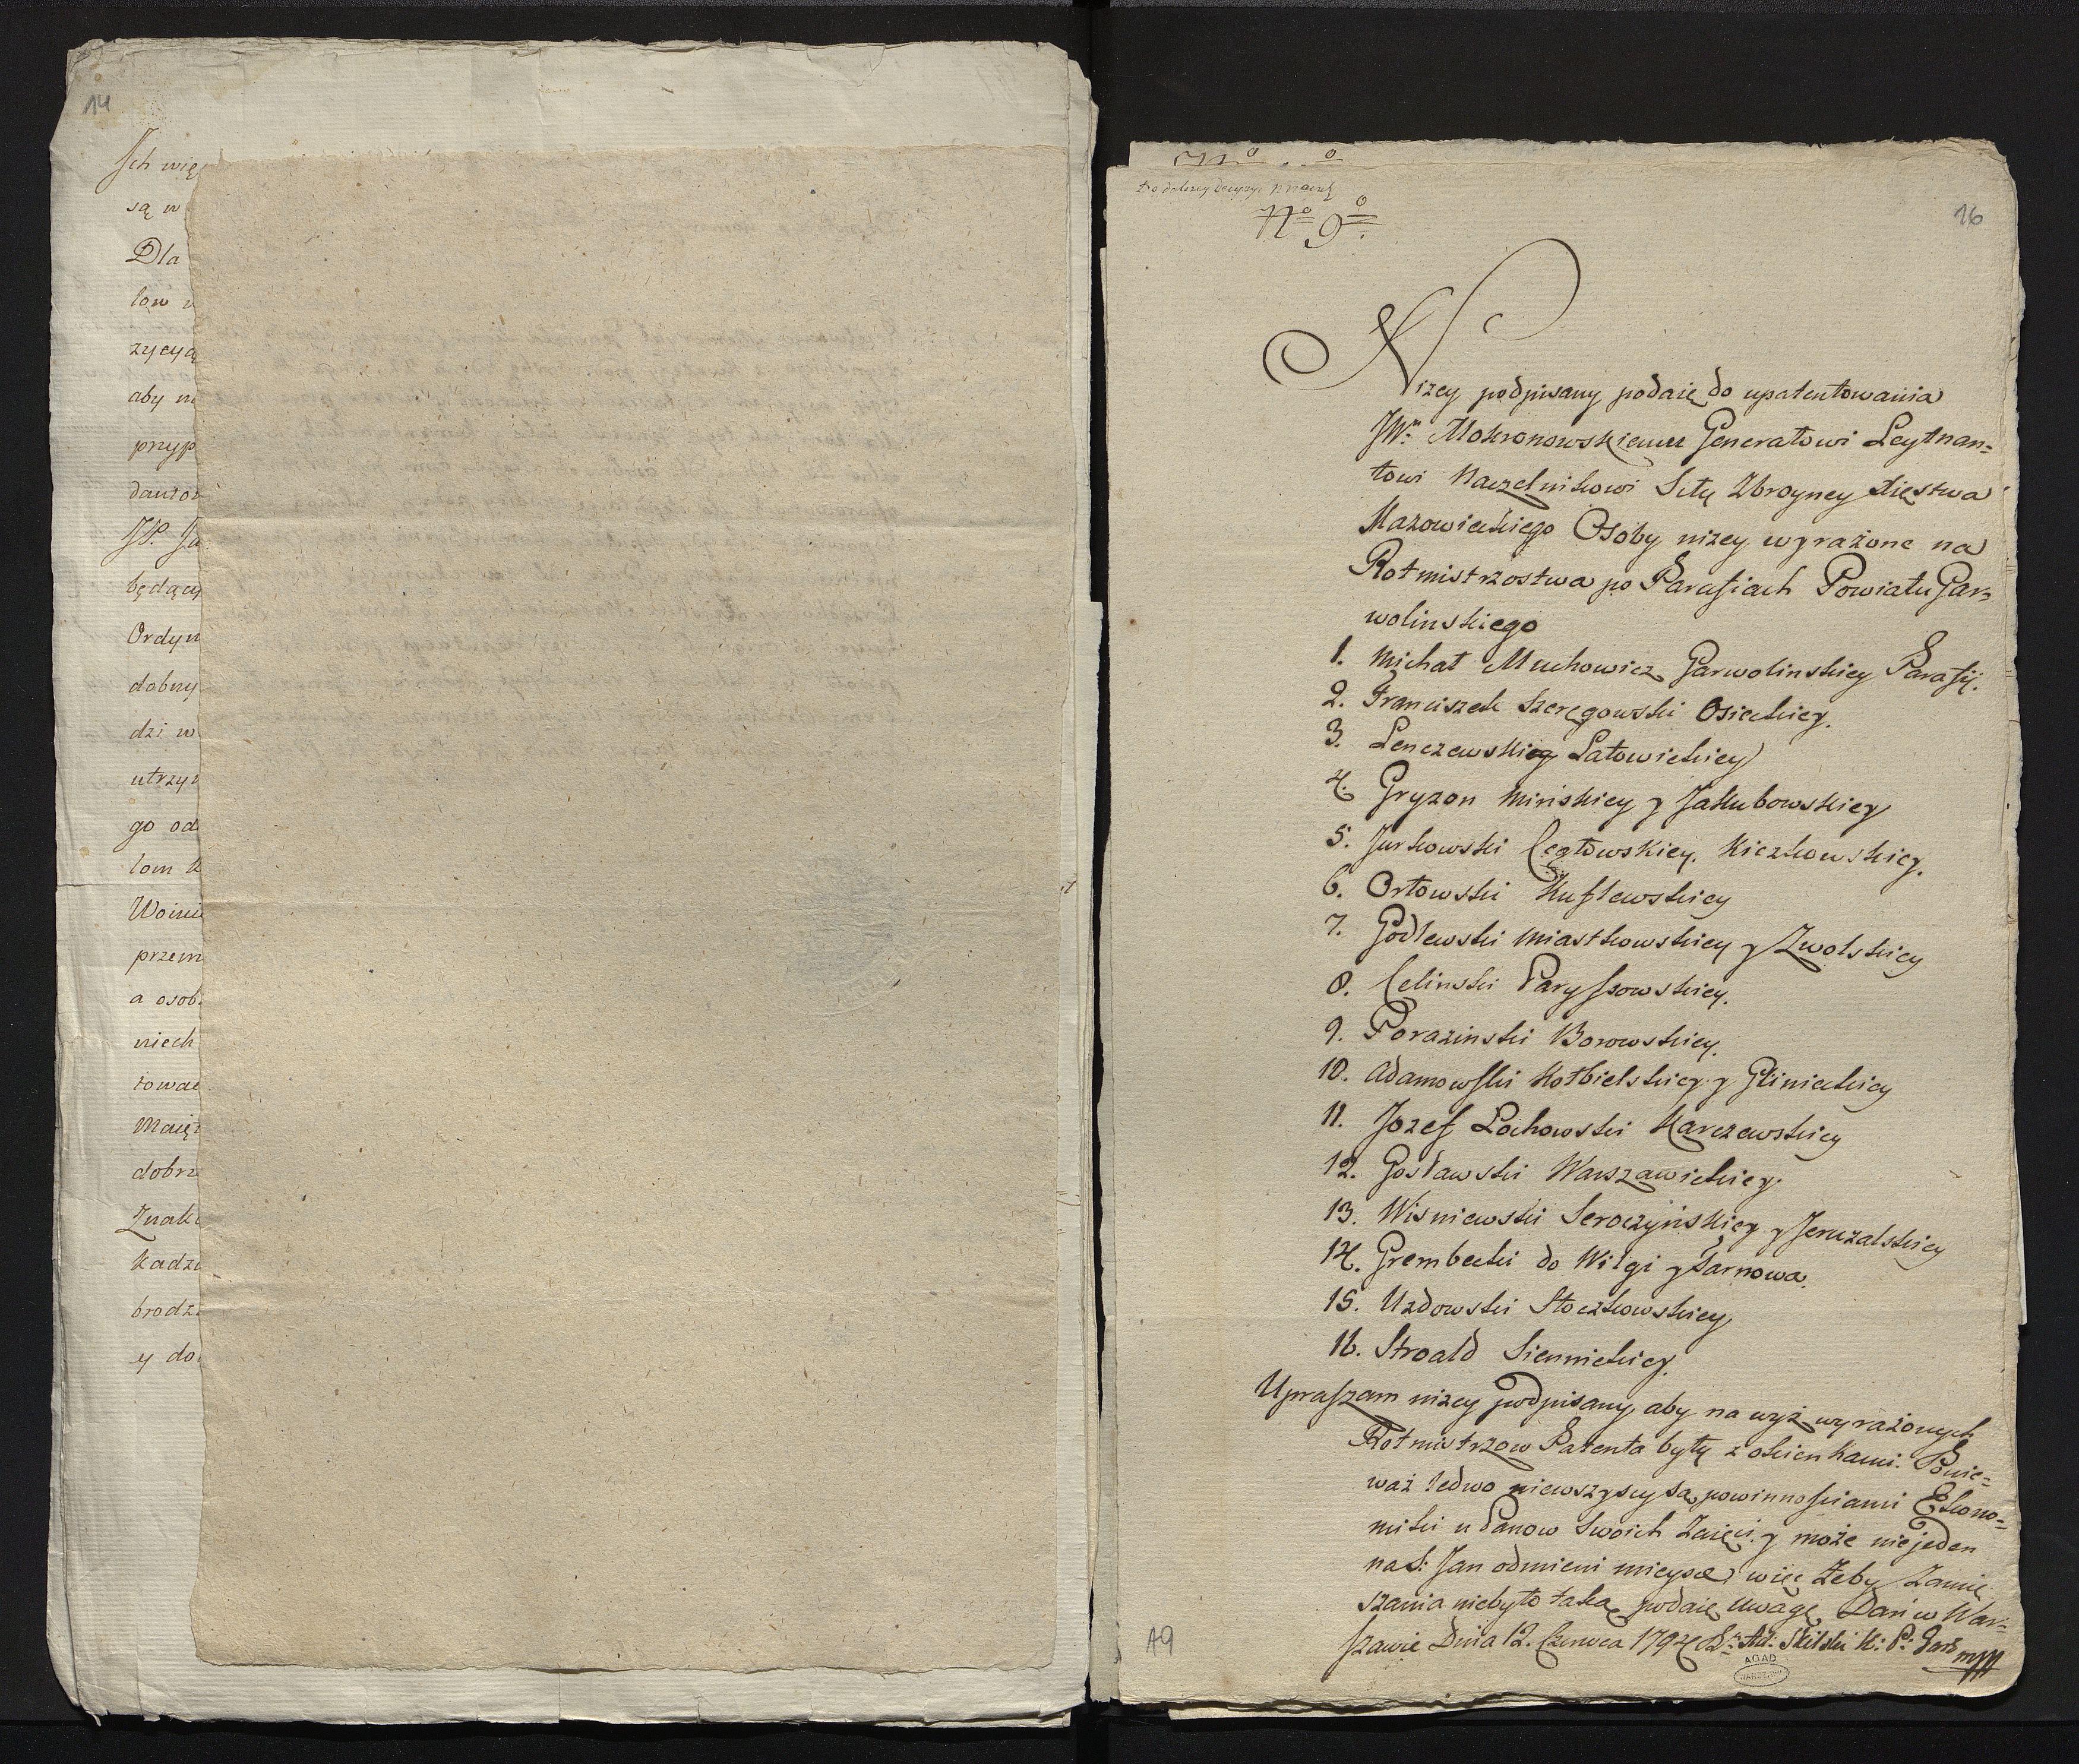 14
Jch wię
są w
Dla
low
życyą
aby
przyp
dantow
JP. Ja
będący
Ordyn
dobny
dzi w
utrzy
go od
lom k
Woiw
przem
a osob
niech
towa
Maię
dobrz
Znak
kadz
brodz
y do
Do dalszey decyzyi
No 9o
16
Nizey podpisany podaię do upatentowania
JWm Mokronowskiemu Generałowi Leytnan=
towi Naczelnikowi Siły Zbroyney Xięstwa
Mazowieckiego Osoby niżey wyrażone na
Rotmistrzostwa po Parafiach Powiatu Gar=
wolinskiego
1. Michał Muchowicz Garwolinskiey Parafij.
2. Franciszek Szeręgowski Osieckiey.
3. Lenczewskiey Latowickiey
4. Gryzon Mińskiey y Jakubowskiey
5. Jurkowski Cegłowskiey. Kiczkowskiey.
6. Orłowski Kuflewskiey
7. Godlewski Miastkowskiey y Zwolskiey
8. Celinski Paryssowskiey.
9. Porazinski Borowskiey.
10. Adamowski Kołbielskiey y Glinieckiey
11. Jozef Lochowski Karczewskiey
12. Gosławski Warszawickiey.
13. Wisniewski Seroczyńskiey y Jeruzalskiey
14. Grembecki do Wilgi y Tarnowa.
15. Uzdowski Stoczkowskiey
16. Stroald Siennickiey.
Upraszam niżey podpisany aby na wyż wyrażonych
Rotmistrzow Patenta były z okienkami. Ponie=
waż ledwo niewszyscy są powinnosciami Ekono=
miki u Panow Swoich Zaięci y może niejeden
na S: Jan odmieni mieysce więc Żeby Zamie
szania niebyło taką podaię Uwagę Dań w War=
szawie Dnia 12. Czerwca 1794 Skilski K: P: Gar mpp
A9
AGAD
WARSZAWA